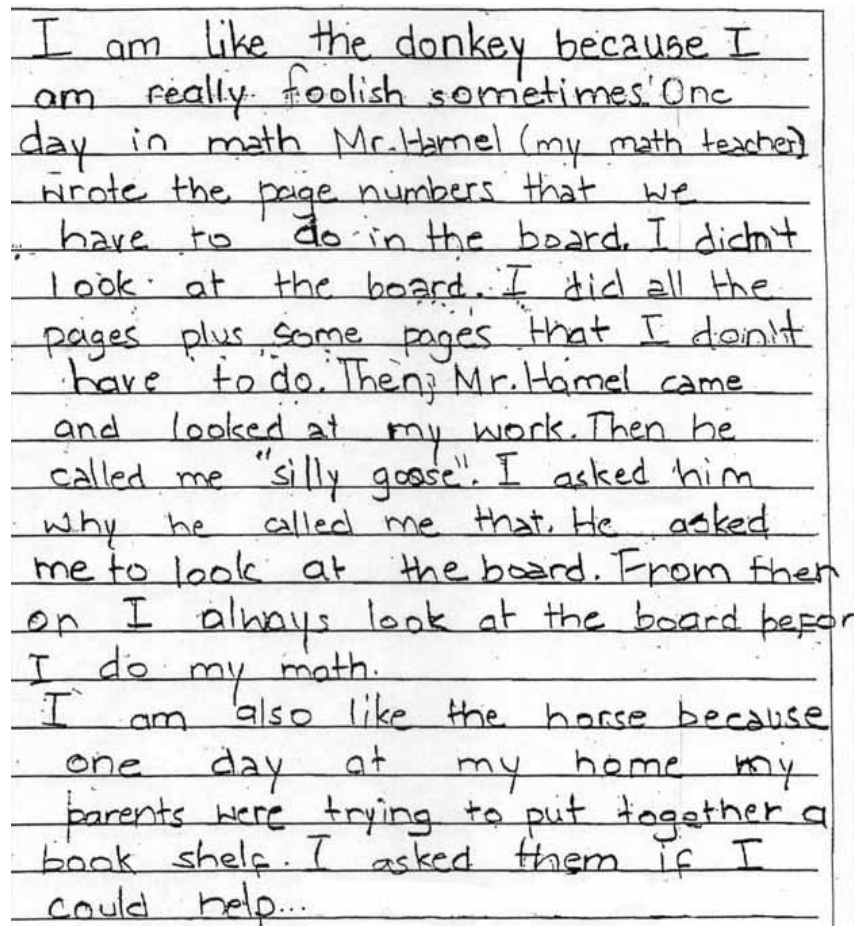 I am like the donkey because I
am really foolish sometimes. One
day in math Mr. Hamel (my math teacher)
wrote the page numbers that we
have to do in the board. I didn't
look at the board. I did all the
pages plus some pages that I don't
have to do. Then, Mr. Hamel came
and looked at my work. Then he
called me "silly goose". I asked him
why he called me that. He asked
me to look at the board. From then
on I always look at the board befor
I do my math.
I am also like the horse because
one day at my home my
parents were trying to put together a
book shelf. I asked them if I
could help...